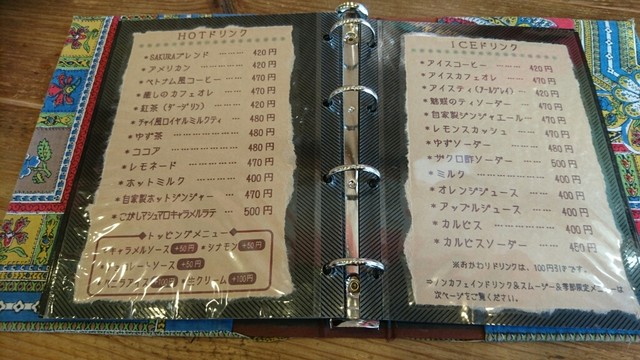 HOTドリンク
SAKURAブレンド ……… 420円
アメリカン ………… 420円
ベトナム風コーヒー …… 470円
癒しのカフェオレ …… 470円
紅茶(ダージリン) …… 420円
チャイ風ロイヤルミルクティ 480円
ゆず茶 ………………… 480円
ココア ………………… 480円
レモネード …………… 470円
ホットミルク ………… 400円
自家製ホットジンジャー … 470円
こがしマシュマロキャラメルラテ … 500円
トッピングメニュー
キャラメルソース +50円 シナモン +50円
ートソース +50円
ニラアイス +100円 生クリーム +100円
ICEドリンク
アイスコーヒー ………… 420円
アイスカフェオレ ……… 470円
アイスティ(アールグレイ) … 420円
魅惑のティソーダー …… 470円
自家製ジンジャエール … 470円
レモンスカッシュ …… 470円
ゆずソーダー ………… 480円
ザクロ酢ソーダー …… 500円
ミルク ………………… 400円
オレンジジュース …… 400円
アップルジュース …… 400円
カルピス ……………… 400円
カルピスソーダー …… 450円
※おかわりドリンクは、100円引きです。
⇒ノンカフェインドリンク&スムージー&季節限定メニューは
次ページをご覧ください。